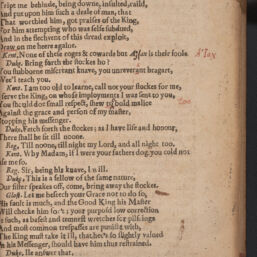 Tript me behinde, being downe, insulted, raild,
And put upon him such a deale of man, that
That worthied him, got praises of the King,
For him attempting who was selfe subdued,
And in the flechuent of this dread exploit,
Draw on me heere againe.
Kent. None of these roges & cowards but A'Jax is their foole. A'Jax
Duke. Bring forth the stockes ho?
You stubborne miscreant knave, you unreverent bragart,
Wee'l teach you.
Kent. I am too old to learne, call not your stockes for me,
I serve the King, on whose imployments I was sent to you,
You should doe small respect, shew too bold malice too
Against the grace and person of my master,
Stopping his messenger.
Duke. Fetch forth the stockes; as I have life and honour,
There shall he sit till noone.
Reg. Till noone, till night my Lord, and all night too.
Kent. Why Madam, if I were your fathers dog, you cold not
use me so.
Reg. Sir, being his knave, I will.
Duke. This is a fellow of the same nature,
Our sister speakes off, come, bring away the stockes.
Glost. Let me beseech your Grace not to do so,
His fault is much, and the Good King his Master
Will checke him for't; your purposd low correction
Is such, as basest and temnest wretches for pilfrings
And most common trespasses are punisht with,
The King must take it ill, that hee's so slightly valued
In his Messenger, should have him thus restrained.
Duke. Ile answer that.